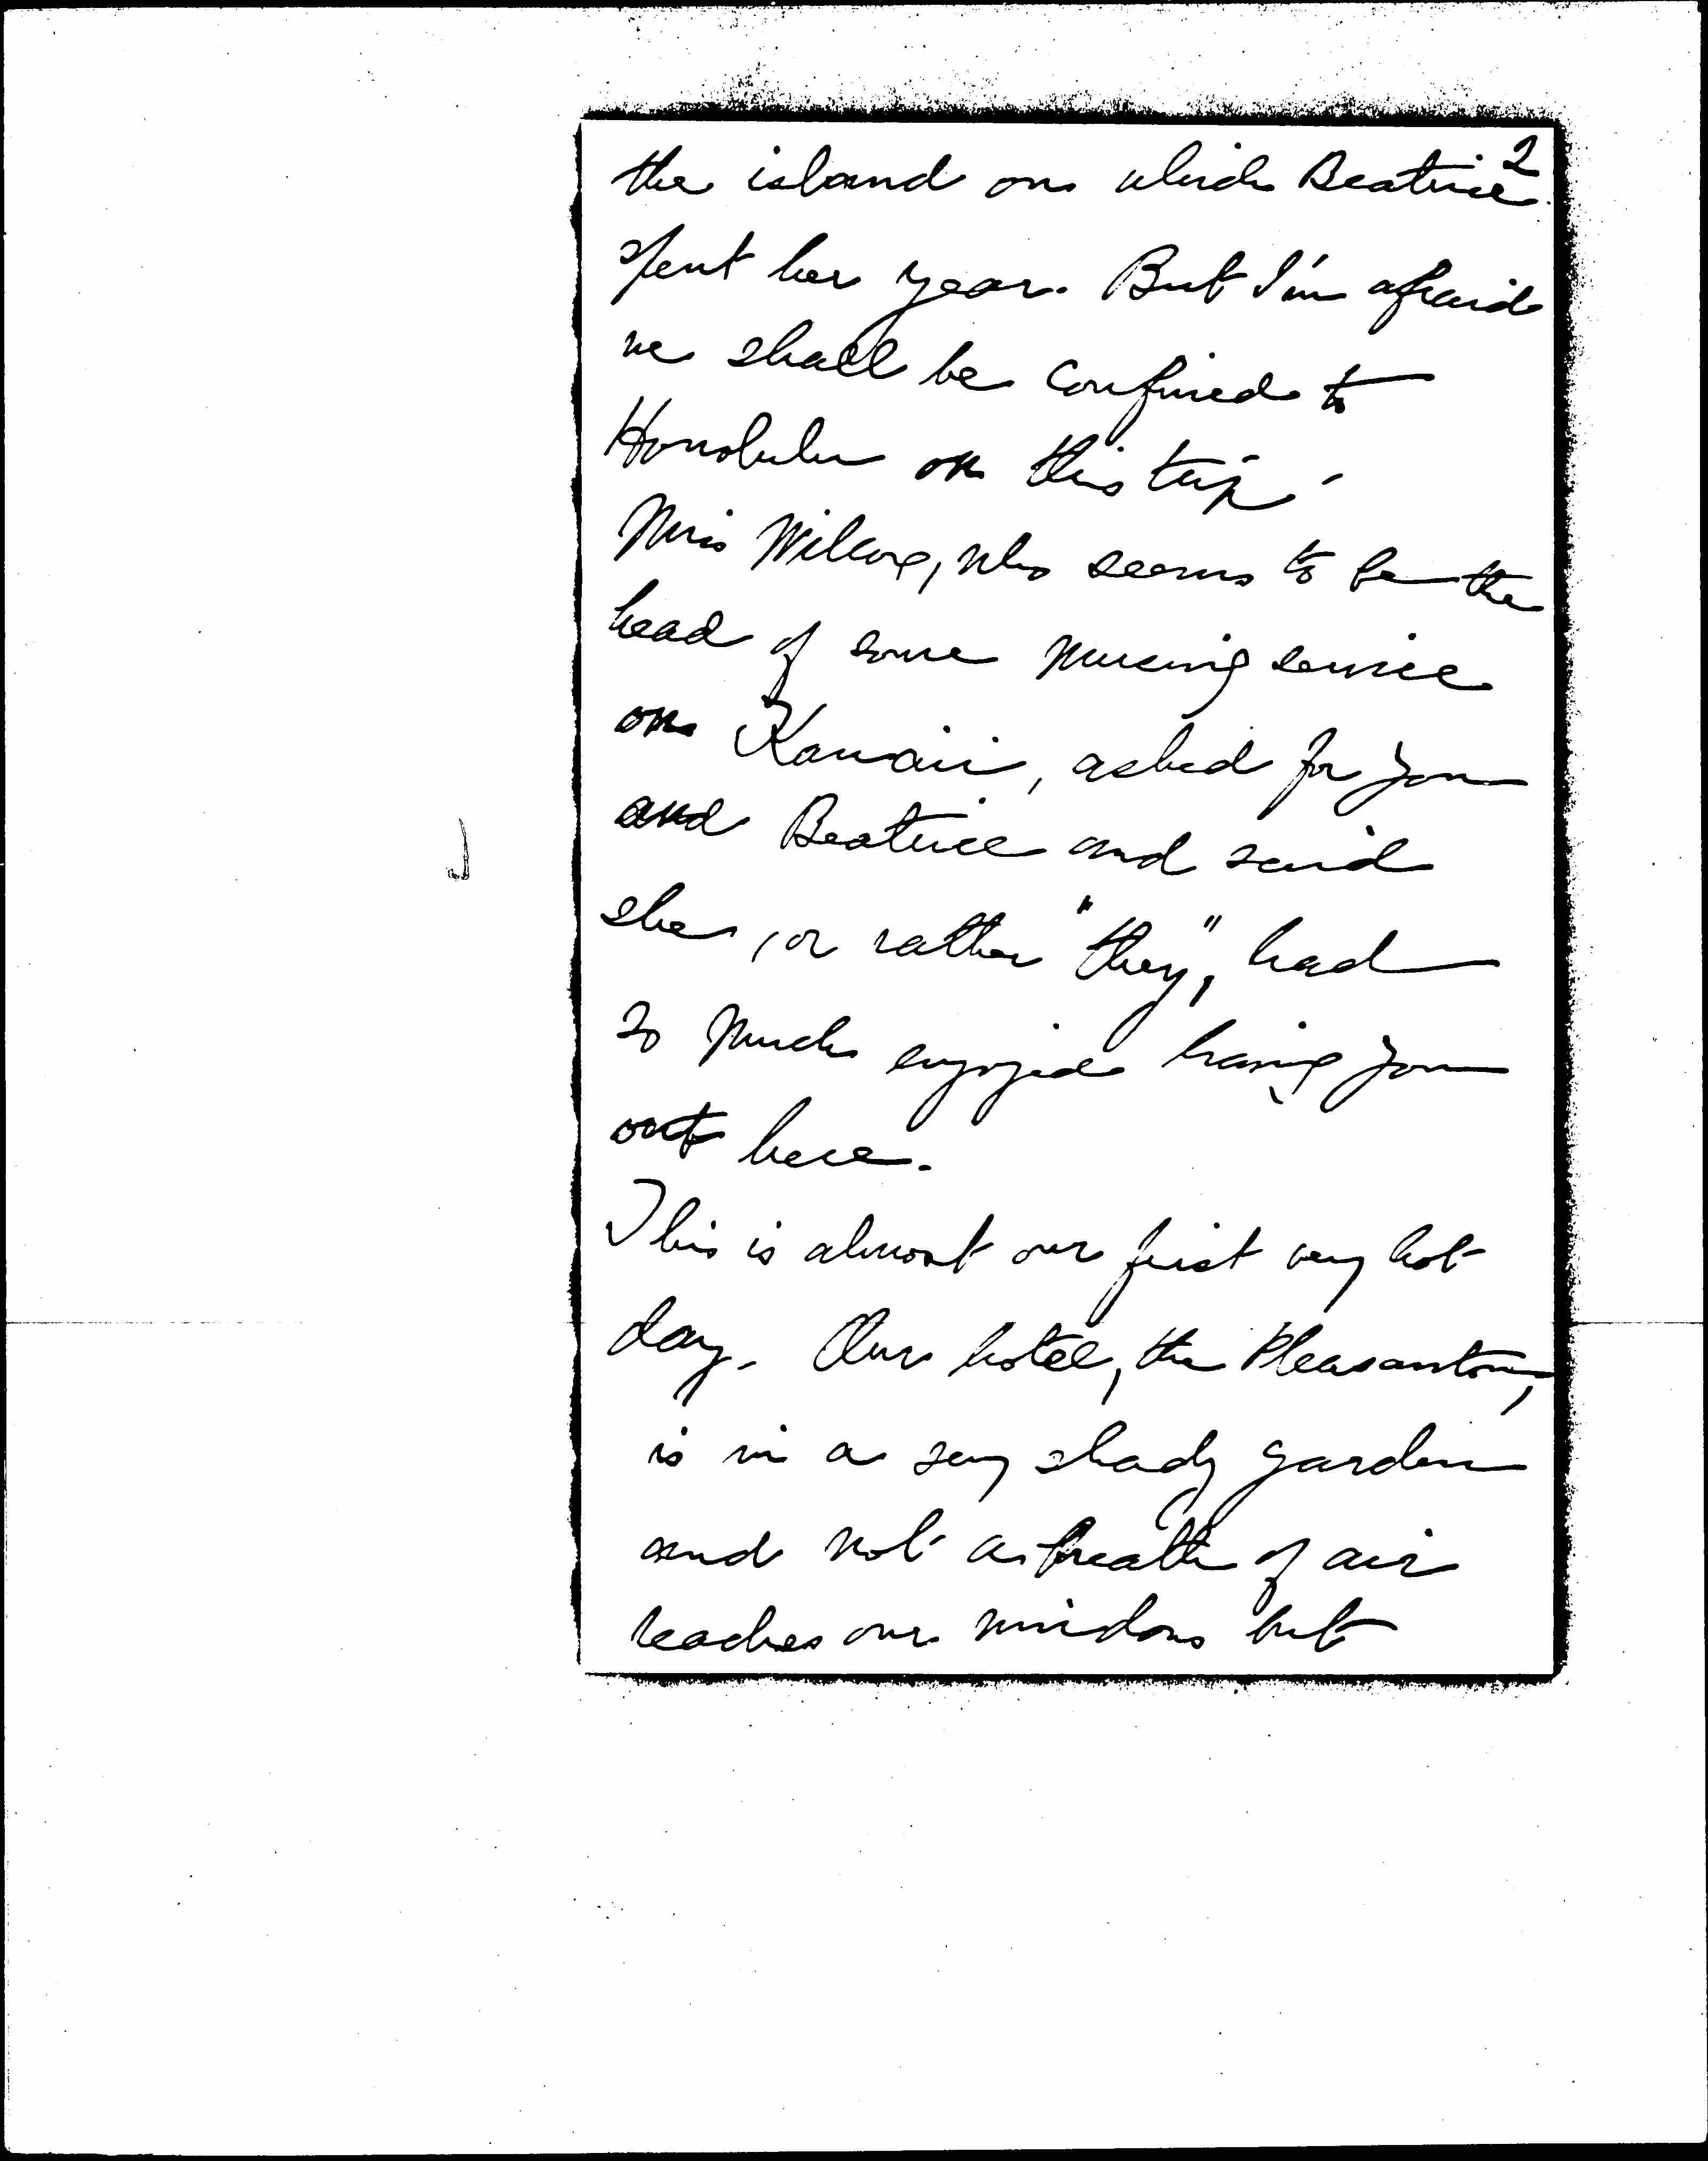 2
the island on which Beatrice
spent her year. But I'm afraid
we shall be confined to
Honolulu on this trip.
Miss Wilcox, who seems to be the
head of some nursing service
on Kauaii, asked for you
and Beatrice and said
she, or rather "they", had
so much enjoyed having you
out here.
This is almost our first very hot
day. Our hotel, the Pleasanton,
is in a very shady garden
and not a breath of air
reaches our windows but